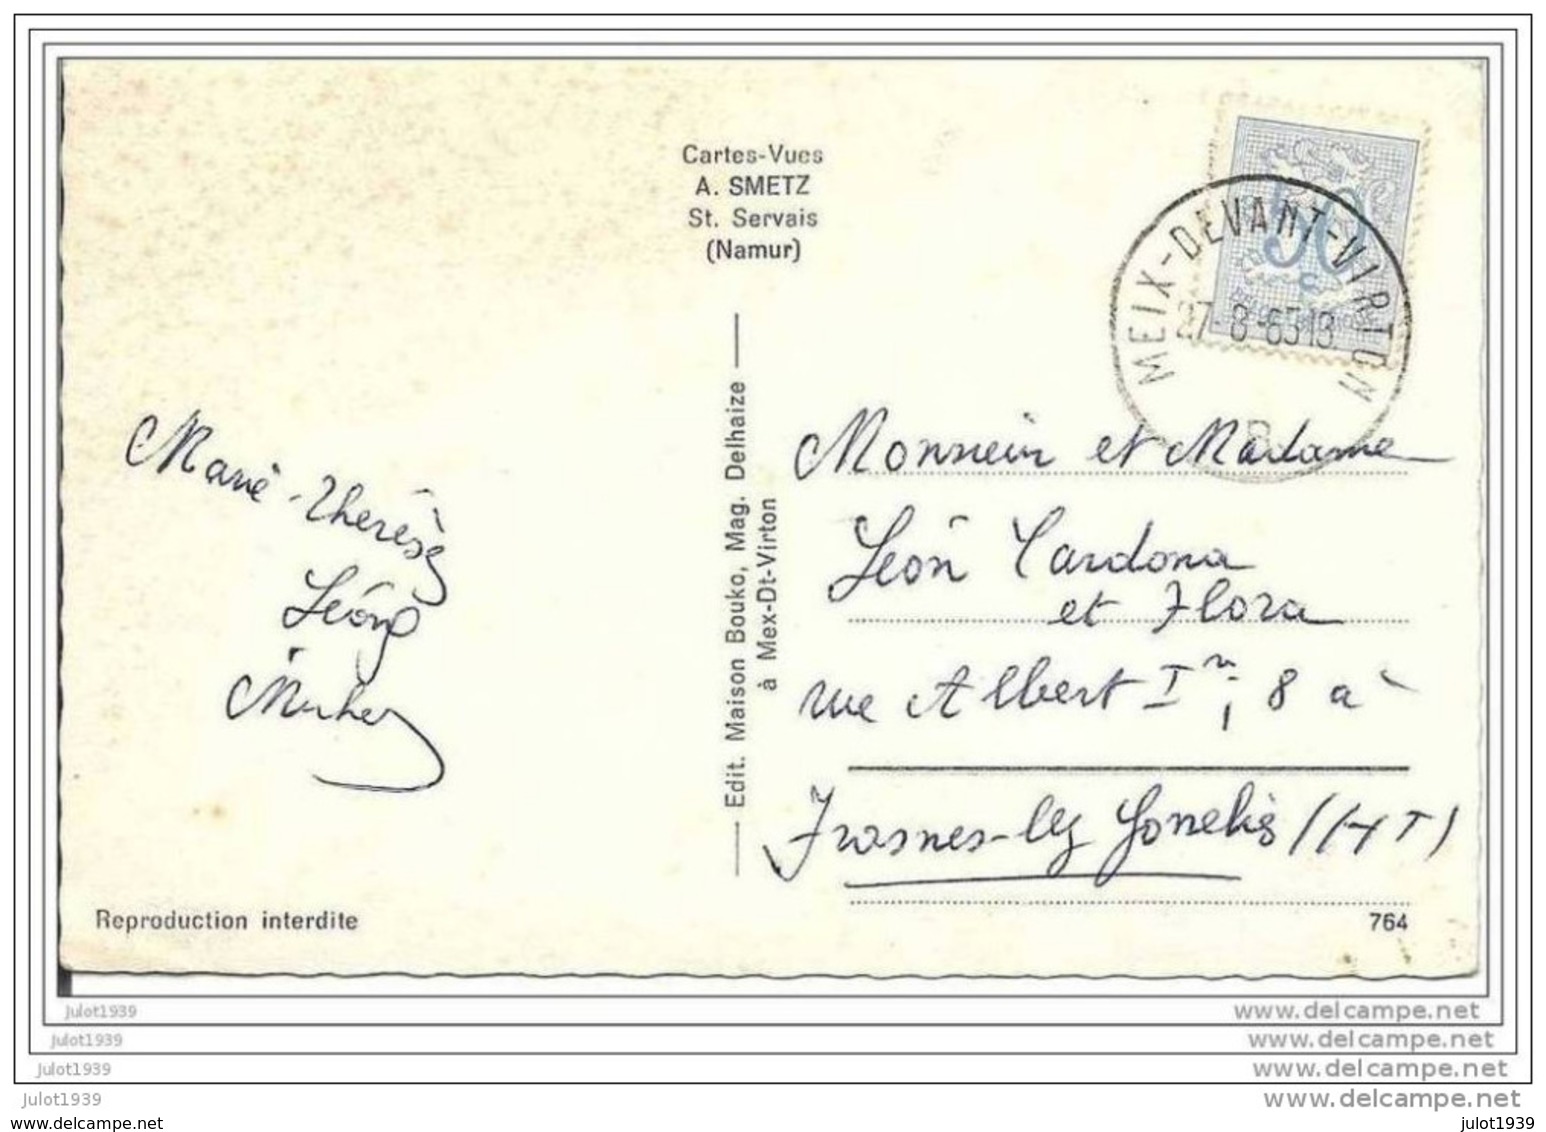 Cartes-Vues
A. SMETZ
St. Servais
(Namur)
50
c
MEIX-DEVANT-VIRTON
27-8-65 13
B
Marie-Thérèse
Léon
Edit. Maison Bouko, Mag. Delhaize
à Mex-Dt-Virton
Monsieur et Madame
Léon Cardona
et Flora
rue Albert Ier, 8 à
Frasnes-lez-Gosselies (HT)
Reproduction interdite
764
Julot1939
www.delcampe.net
Julot1939
www.delcampe.net
Julot1939
www.delcampe.net
Julot1939
www.delcampe.net
www.delcampe.net
julot1939